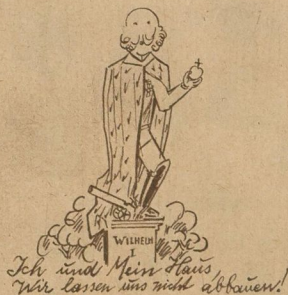 WILHELM
I
Ich und Mein Haus,
Wir lassen uns nicht abbauen!